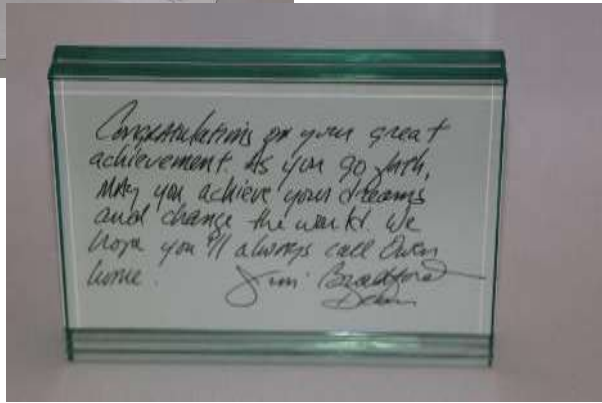 Congratulations on your great
achievement. As you go forth,
May you achieve your dreams
and change the world. We
hope you'll always call Owen
home. Jim Bradford
Dean